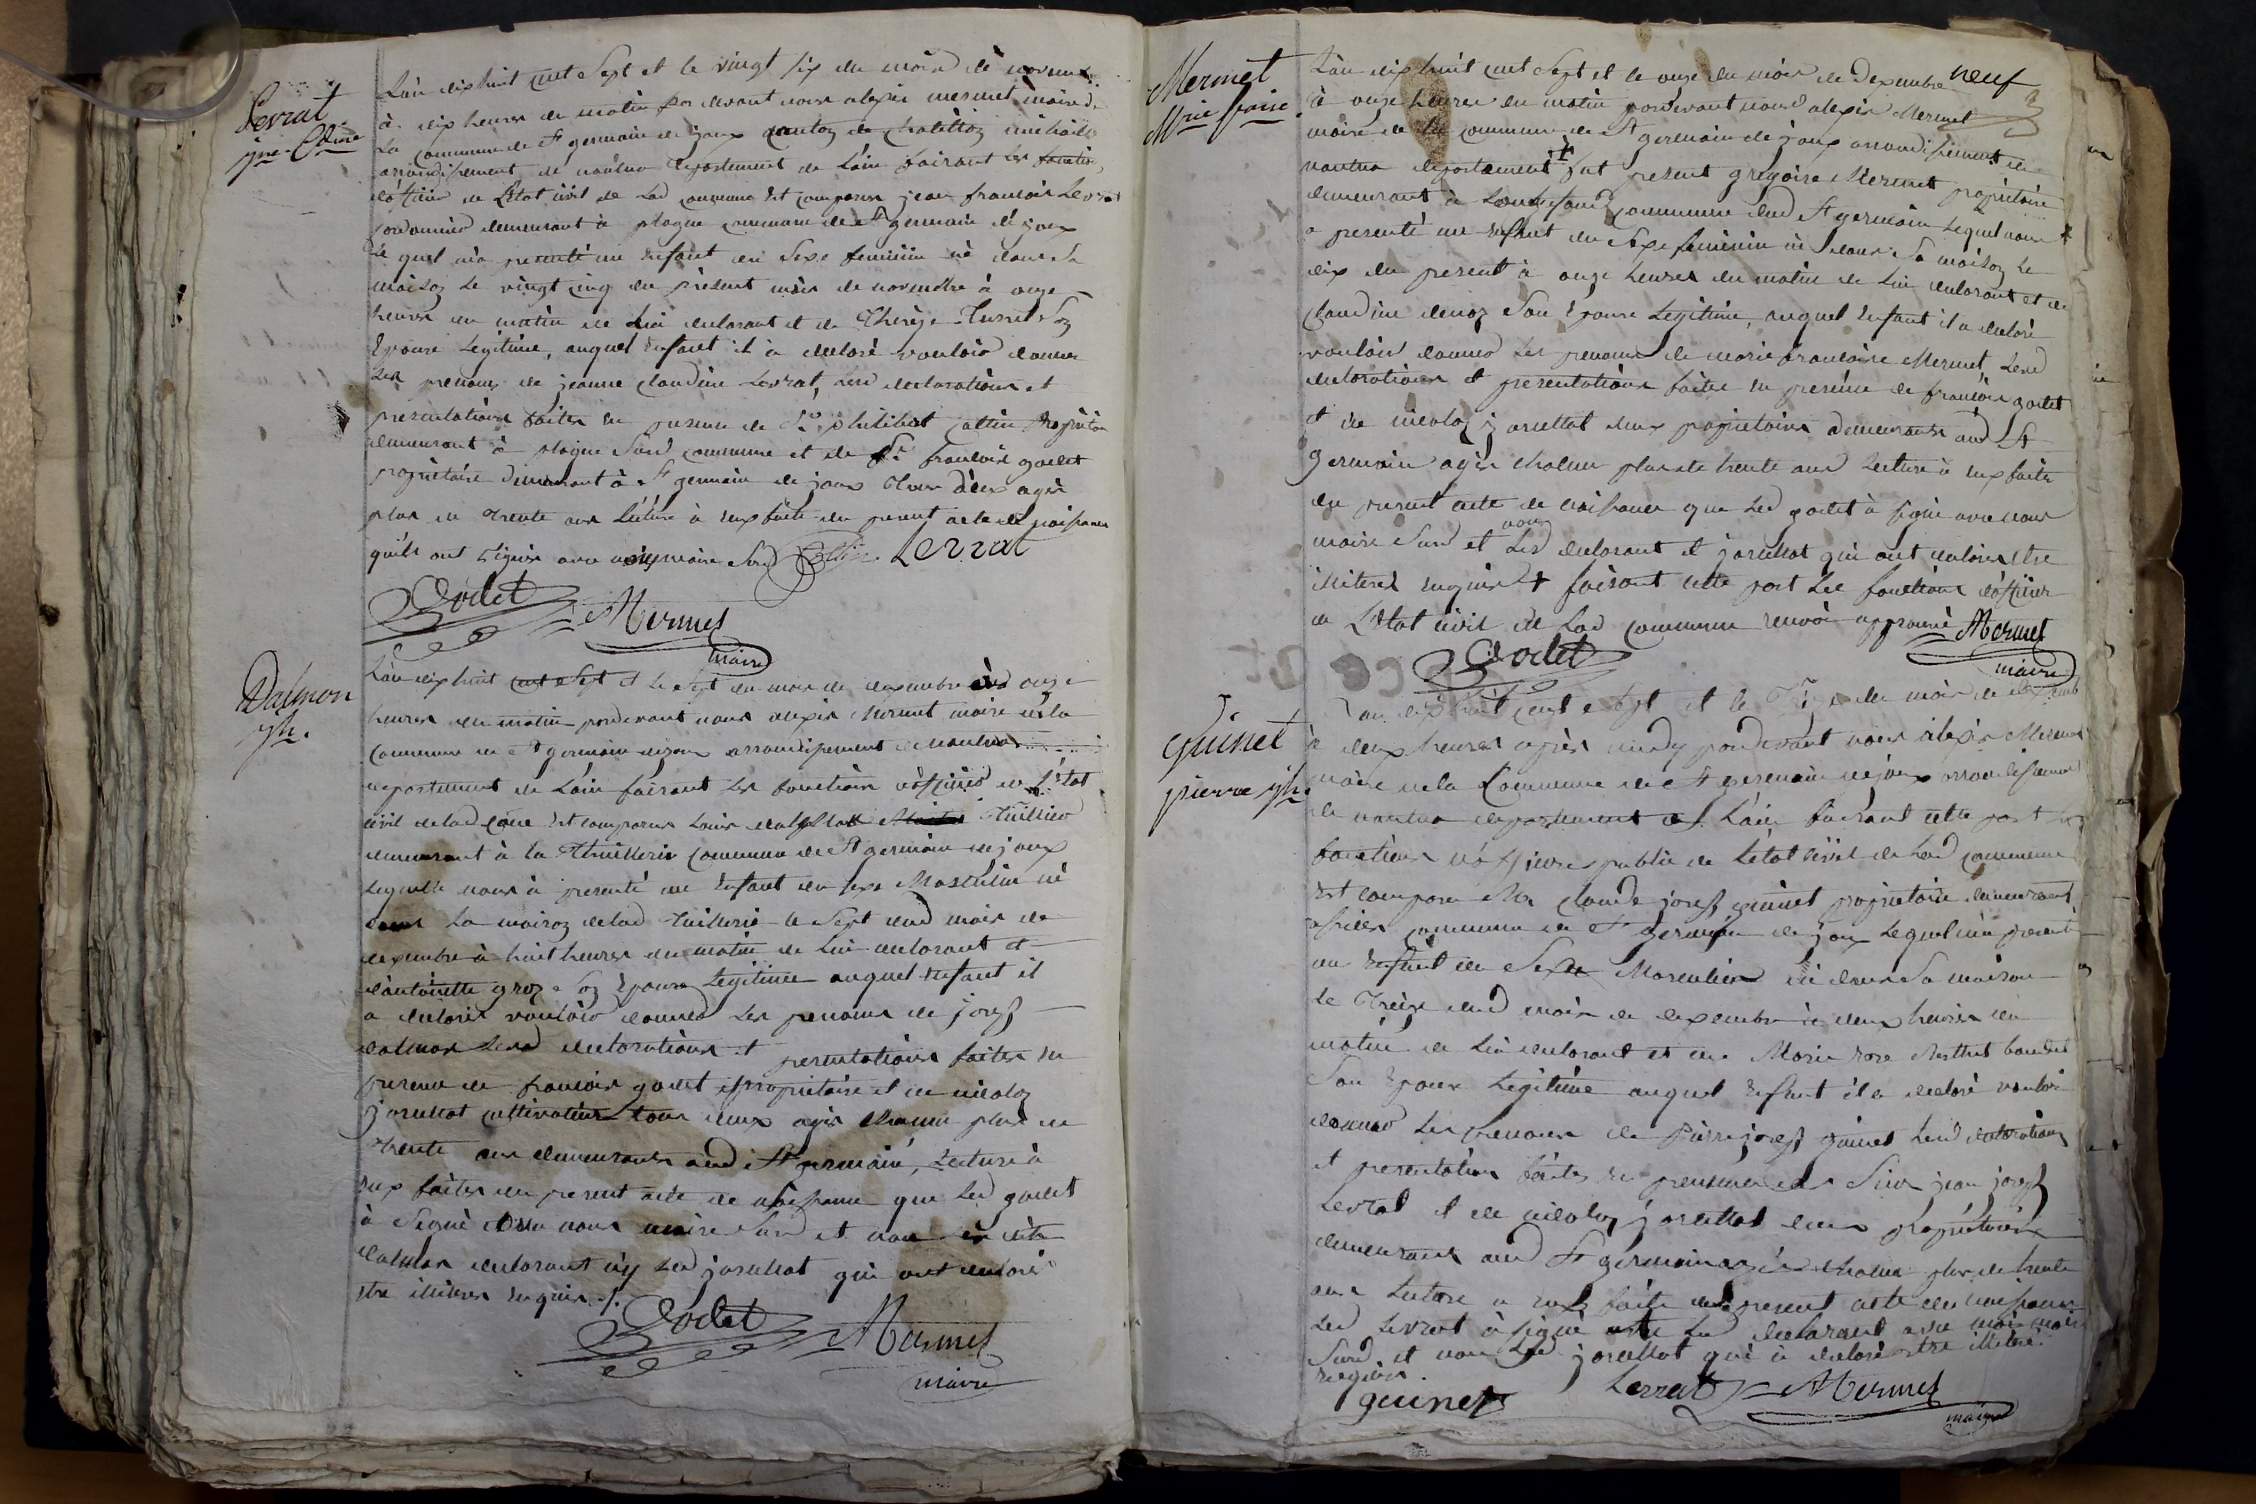 Levrat
jne. Cdine
L'an dix huit cent Sept et le vingt six du mois de novembre
à dix heures du matin par devant nous alexis mermet maire de
la commune de St germain de joux canton de Chatillon
arrondissement de nantua departement de L'ain faisant les fonctions
d'officier de L'etat civil de Lad commune Est comparu jean francois Levrat
cordonnier demeurant à plagne commune de St germain de joux
Le quel m'a presenté un Enfant du Sexe feminin né dans Sa
maison Le vingt cinq du présent mois de novembre à onze
heures du matin de Lui declarant et de Therèze Son
Epouse Legitime, auquel Enfant il a declaré vouloir donner
Les prenoms de jeanne claudine Levrat, Lesd declarations et
presentations faites en presence de Sr. philibert propriétaire
demeurant à plagne Susd commune et de Sr francois godet
propriétaire demeurant à St germain de joux Tous deux agés
plus de Trente ans Lecture à Eux faite du present acte de naissance
qu'ils ont signés avec nous maire Susd Levrat
Godet Mermet
maire
Dalmon
jh.
L'an dix huit cent Sept et Le Sept du mois de dexembre à onze
heures du matin pardevant nous alexis Mermet maire de la
commune de St germain dejoux arrondissement de Nantua
departement de L'ain faisant Les fonctions d'officier de L'Etat
civil delad Cone Est comparus Louis Tuillier
demeurant à la Thuillerie commune de St germain dejoux
Lequelle nous à presenté un Enfant du sexe Masculin né
dans La maison delad Tuillerie le Sept dud mois de
dexembre à huit heures du matin de Lui declarant et
d'antoinette groz Son Epouse Legitime auquel Enfant il
a declaré vouloir donner Les prenoms de josef
dalmon Lesd declarations et presentations faites en
presence de francois godet propriétaire et de nicolas
jorettot cultivateur tous deux agés chacun plus de
Trente ans demeurants aud St germain, Lecture à
Eux faites du present acte de naissance que Led godet
à Signé avec nous maire Susd et non
dalmon declarant ny Led jorettot qui ont declaré
etre illitérés Enquis.
Godet Mermet
maire
neuf
Mermet
Mrie fcoise.
L'an dix huit cent Sept et le onze du mois de Dexembre
à onze heures du matin pardevant nous alexis Mermet
maire de la commune de St germain de joux arrondissement de
nantua departement fut present gregoire Mermet propriétaire
demeurant à Longefand commune dud St germain Lequel nous
a presenté un Enfant du Sexe feminin né dans Sa maison Le
dix du present à onze heures du matin de Lui declarant et de
claudine Son Epouse Legitime, auquel Enfant il a declaré
vouloir donner Les prenoms de marie francoise Mermet, Lesd
declarations et presentations faites en presence de francois godet
et de nicolas jorettot deux propriétaires demeurants aud St
germain agés chacun plus de trente ans Lecture à eux faite
du present acte de naissance que Led godet à signé avec nous
maire Susd et non Lesd declarant et jorettot qui ont declarés etre
illiterés enquis + faisant cette part Les fonctions d'officier
de L'Etat civil de Lad commune renvoi approuvé Mermet
maire
Godet
Guinet
pierre jh.
L'an dix huit cent Sept et le Treize du mois de dexemb
à deux heures après midy pardevant nous alexis Mermet
maire de la Commune de St germain dejoux arrondissement
de nantua departement de L'ain faisant cette part les
fonctions d'officier public de L'état civil de Lad commune
Est comparu claude josef guinet propriétaire demeurant
commune de St germain de joux Lequel m'a presenté
un Enfant du Sexe Masculin né dans Sa maison
Le Treize dud mois de dexembre à deux heures du
matin de Lui declarant et de Marie rose
Son Epouse Legitime auquel Enfant il a declaré vouloir
donner Les prenoms de Pierre josef guinet Lesd declarations
et presentation faites en presence des Sieur jean josef
Levrat et de nicolas jorettot deux propriétaires
demeurants aud St germain agés chacun plus de trente
ans Lecture a eux faite du present acte de naissance
Led Levrat à signé Led declarant avec nous maire
Susd et non Led jorettot qui a declaré etre illitéré
enquis.
guinet Levrat Mermet
maire